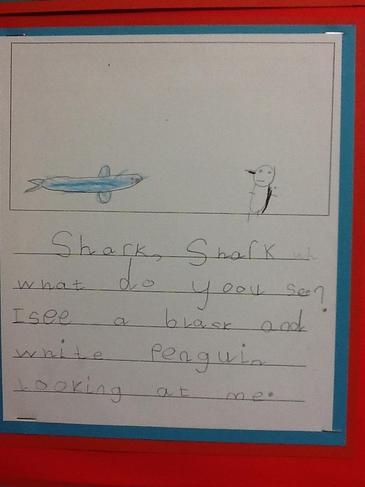 Shark, Shark wh
what do yoou see?
I see a blask and
white Penguin
Looking at me.